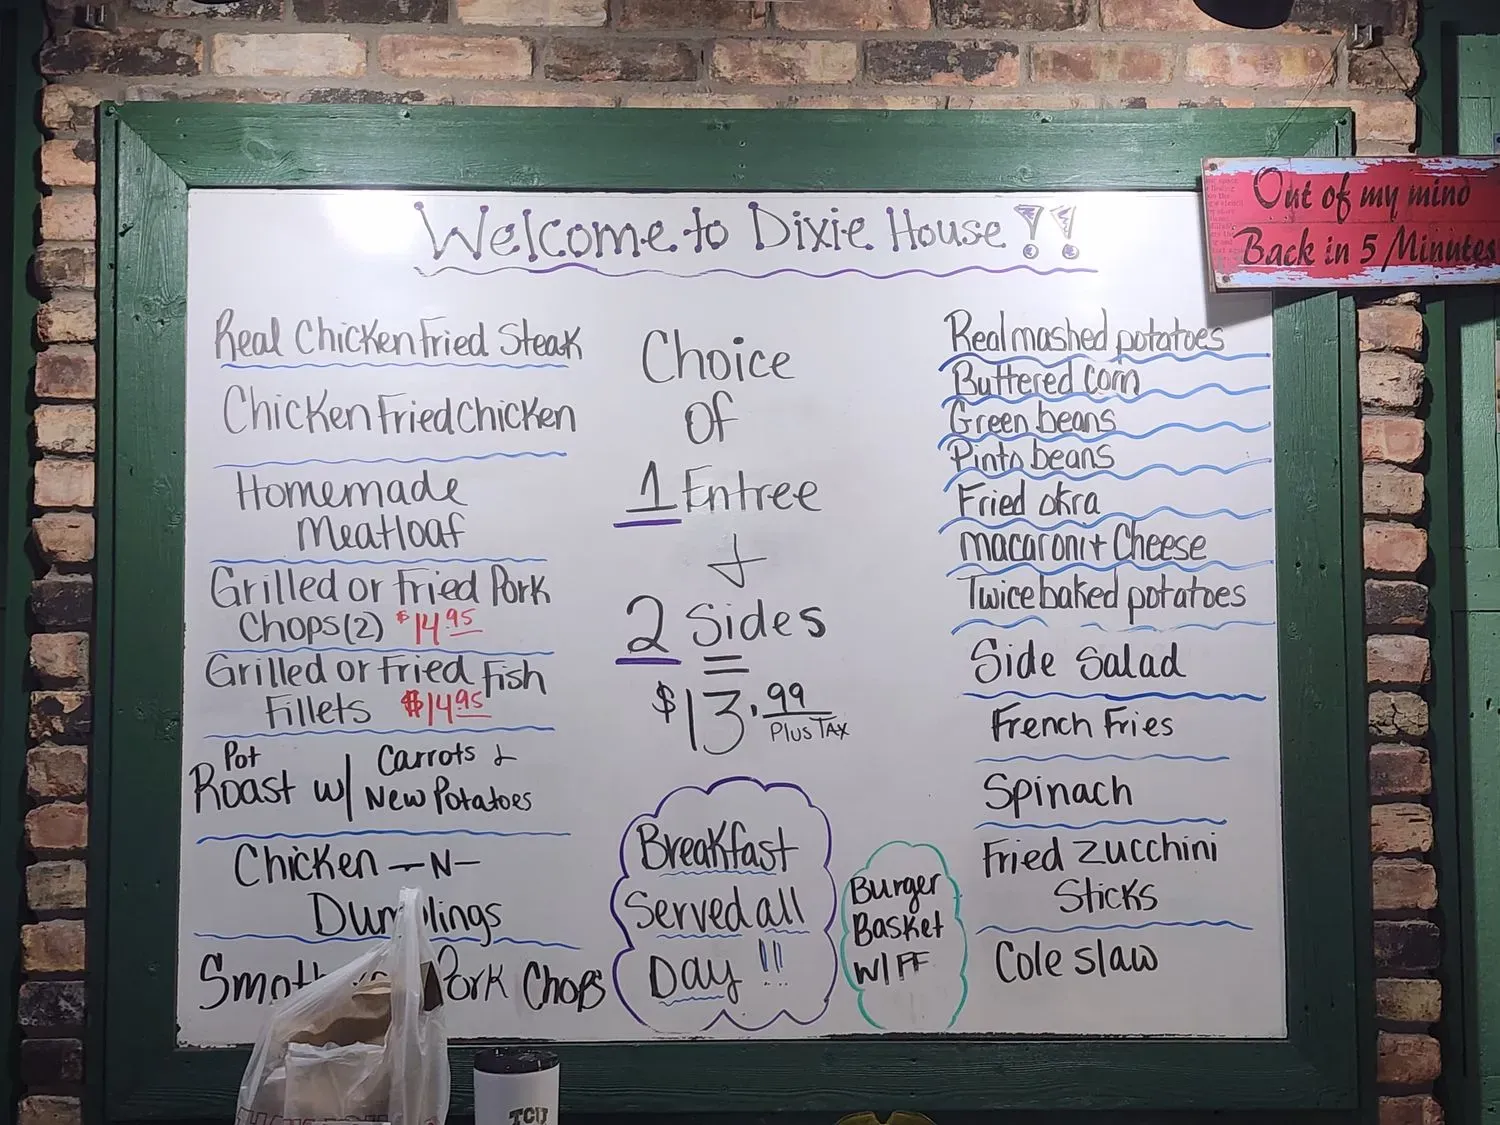 Welcome to Dixie House!!
Out of my mind
Back in 5 Minutes
Real Chicken Fried Steak
Chicken Fried Chicken
Homemade
Meatloaf
Grilled or Fried Pork
Chops (2) $14.95
Grilled or Fried Fish
Fillets $14.95
Pot
Roast w/ Carrots &
New Potatoes
Chicken -N-
Dumplings
Pork Chops
Choice
of
1 Entree
+
2 Sides
=
$13.99
Plus TAX
Breakfast
Served all
Day!!!
Burger
Basket
W/FF
Real mashed potatoes
Buttered corn
Green beans
Pinto beans
Fried okra
macaroni + Cheese
Twice baked potatoes
Side Salad
French Fries
Spinach
Fried Zucchini
Sticks
Cole slaw
TCU